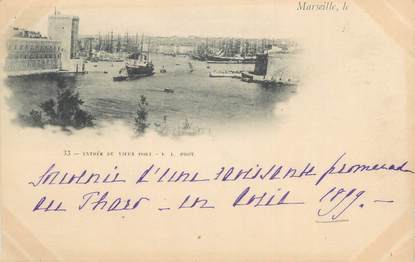 Marseille, le
33 — ENTRÉE DU VIEUX PORT — V. L. PHOT.
Souvenir d'une ravissante promenade
au Pharo — en Août 1899. —